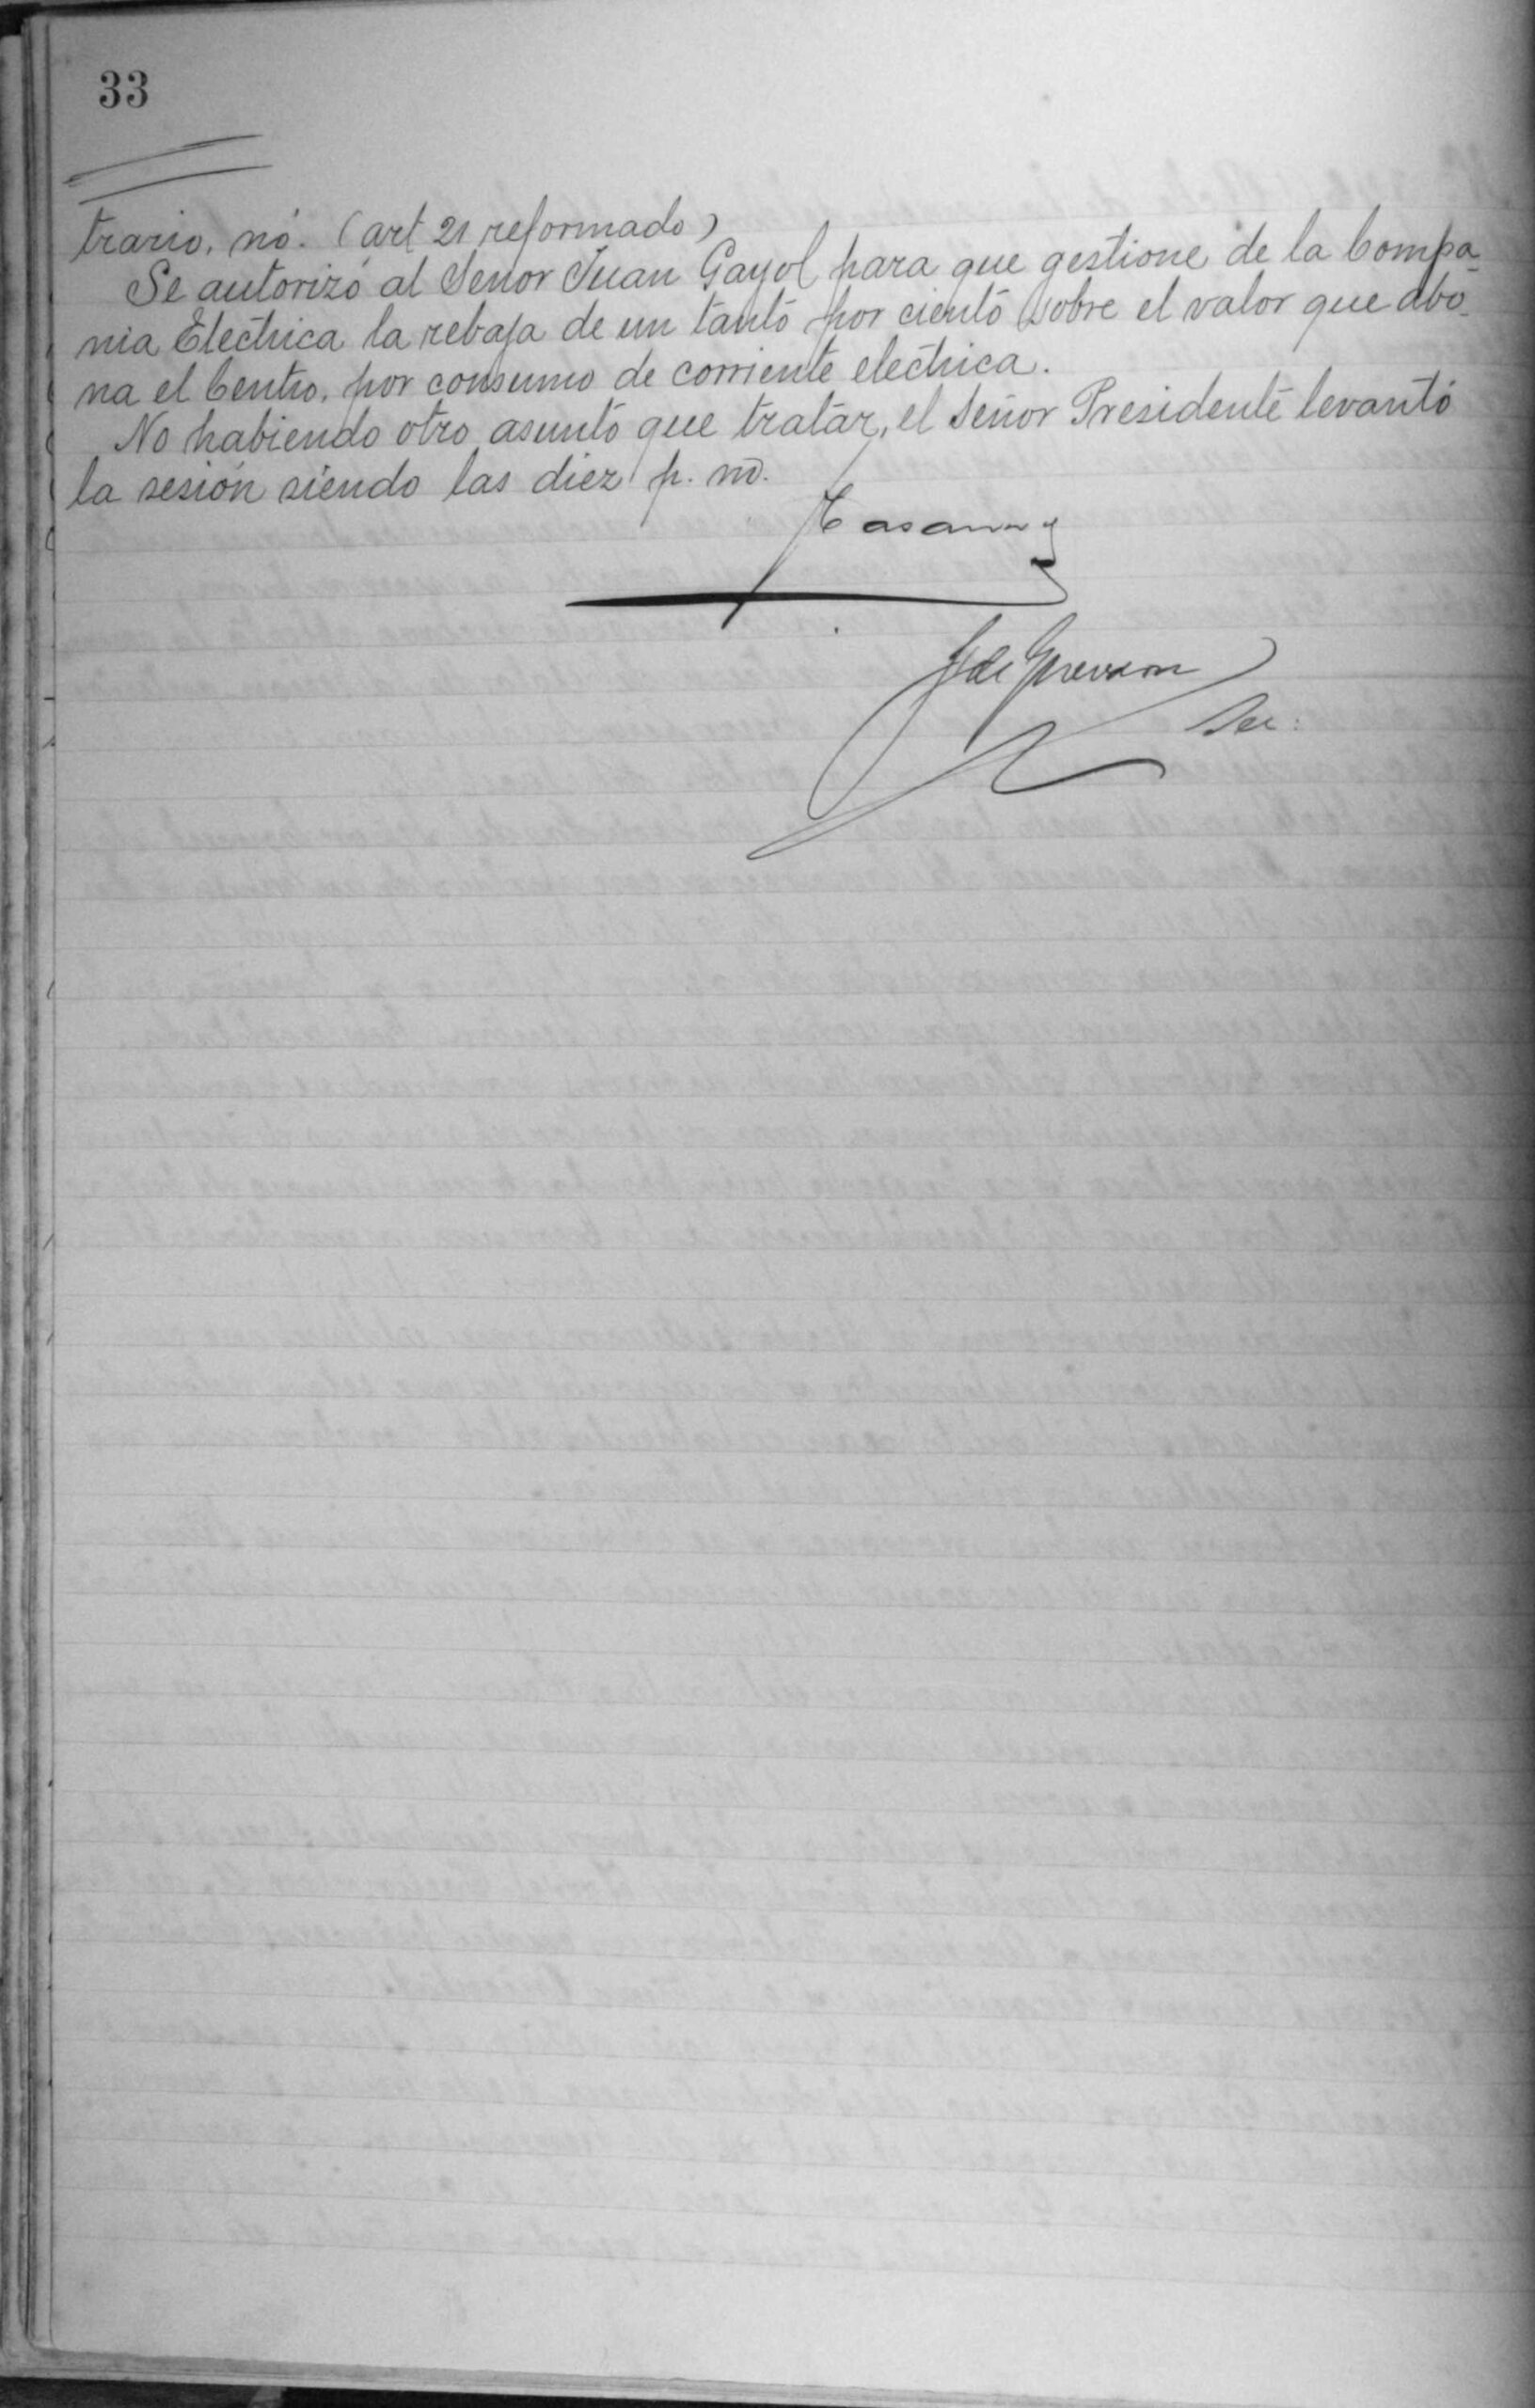 33
trario, nó. (art 21 reformado)
Se autorizó al Señor Juan Gayol para que gestione de la Compa-
nia Electrica la rebaja de un tanto por ciento sobre el valor que abo-
na el Centro, por consumo de corriente electrica.
No habiendo otro asunto que tratar, el Señor Presidente levantó
la sesión siendo las diez p. m.
Sec: